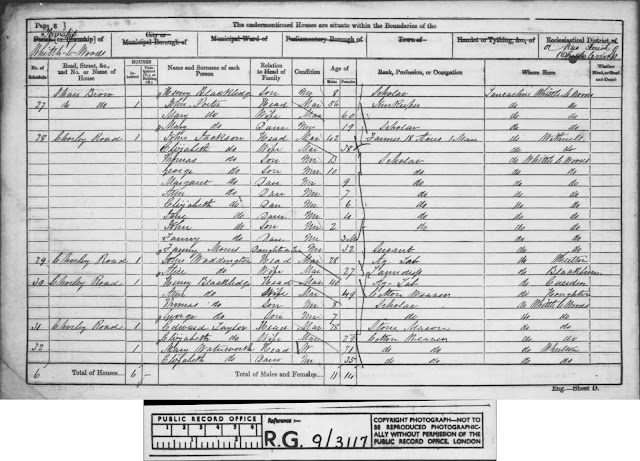 Page 6]
The undermentioned Houses are situate within the Boundaries of the
Township of
City or Municipal Borough of
Municipal Ward of
Parliamentary Borough of
Town of
Hamlet or Tything, &c., of
Ecclesiastical District of
Whittle le Woods
No. of Schedule
Road, Street, &c., and No. or Name of House
HOUSES
Name and Surname of each Person
Relation to Head of Family
Condition
Age of
Males
Females
Rank, Profession, or Occupation
Where Born
Whether Blind, or Deaf-and-Dumb
Henry Blackledge Son Un 8 Scholar Lancashire Whittle le Woods
27 do do 1 John Porter Head Mar 56 Inn Keeper do do
Mary do Wife Mar 60 do do
Mary do Daur Un 19 Scholar do do
28 Chorley Road 1 John Jackson Head Mar 42 Farmer Acres 1 Man do
Elizabeth do Wife Mar 38 do Whittle le Woods
Thomas do Son Un 13 Scholar do
George do Son Un 10 do do do
Margaret do Daur Un 9 do do do
Ann do Daur Un 7 do do do
Elizabeth do Daur Un 6 do do do
Jane do Daur Un 4 do do do
John do Son Un 2 do do
Fanny do Daur Un do do
Fanny Un 32 Servant do do
29 Chorley Road 1 John Waddington Head Mar 28 Ag Lab do
Alice do Wife Mar 27 do Blackburn
30 Chorley Road 1 Henry Blackledge Head Mar 48 Ag Lab do Cuerden
Ann do Wife Mar 49 Cotton Weaver do Houghton
Thomas do Son Un 8 Scholar do Whittle le Woods
George do Son Un 7 do do do
31 Chorley Road 1 Edward Taylor Head Mar 28 Stone Mason do do
Elizabeth do Wife Mar 29 Cotton Weaver do do
32 1 Mary Head W 71 do do do Wheelton
Elizabeth do Daur Un 35 do do do do
6 Total of Houses... 6 Total of Males and Females... 11 14
Eng.—Sheet D.
PUBLIC RECORD OFFICE
1 2 3 4 5 6
Reference :-
R.G. 9/3117
COPYRIGHT PHOTOGRAPH—NOT TO BE REPRODUCED PHOTOGRAPHICALLY WITHOUT PERMISSION OF THE PUBLIC RECORD OFFICE, LONDON